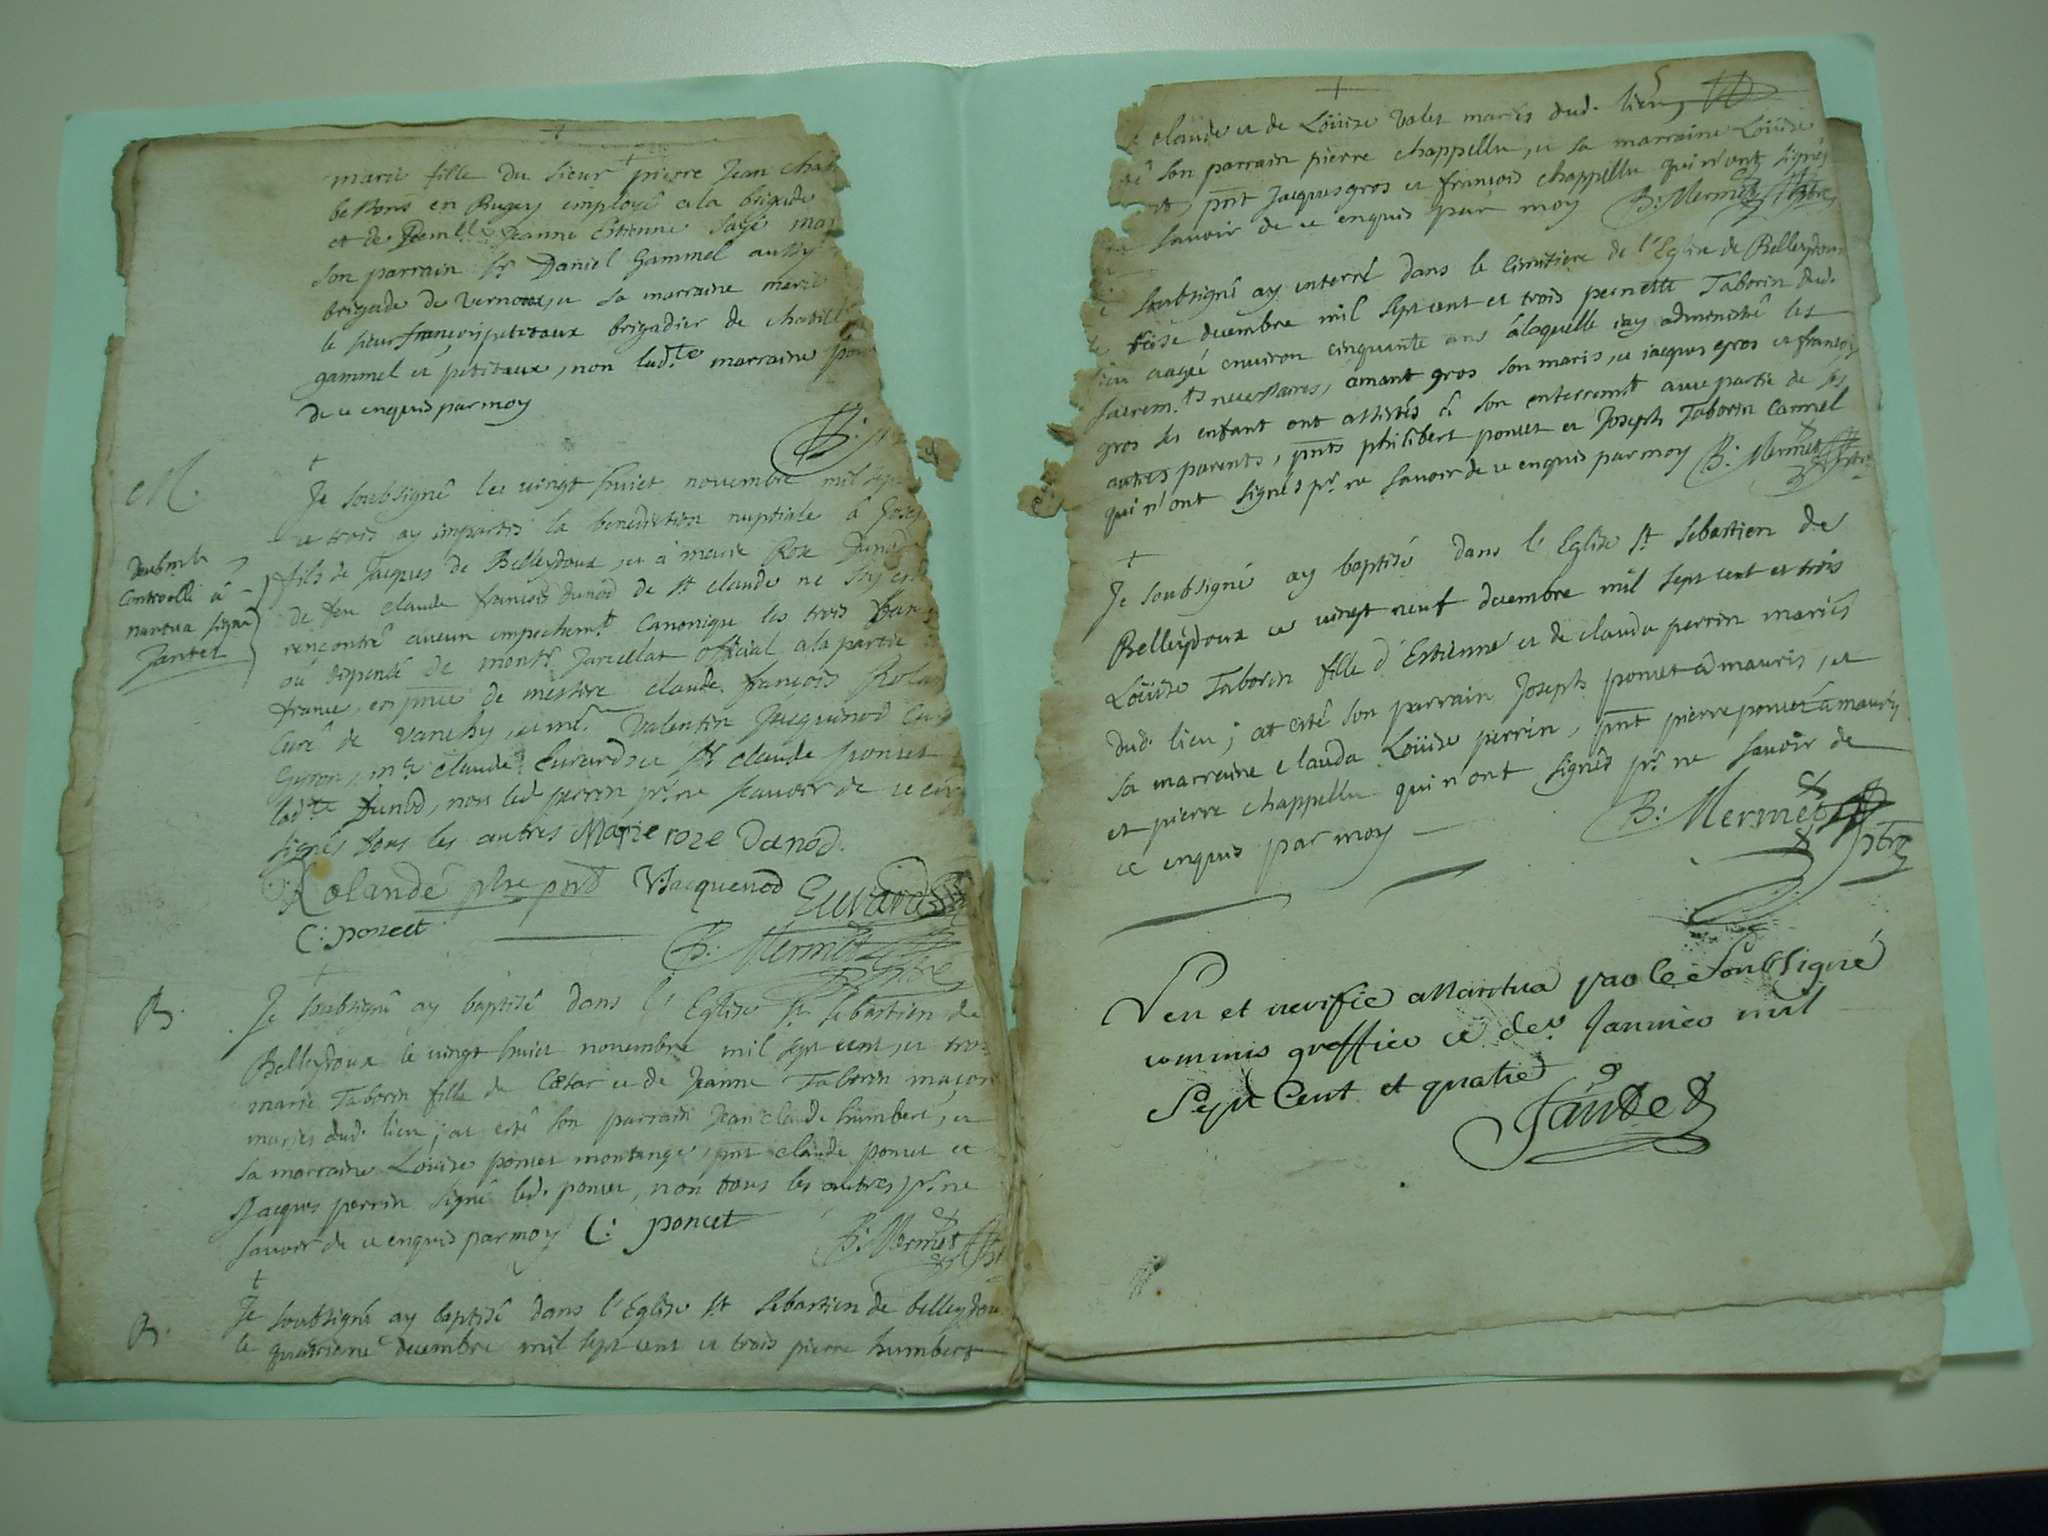 marie fille du sieur pierre Jean Chab
be Bons en Bugey employé a la brigade
et de Jeanne Estienne
son parrain Sr Daniel Gammel aussy
brigade de vernoux, et sa marraine marie
le sieur françois petitaux brigadier de chatill
gammel et petitaux, non lad.te marraine pour
de ce enquis par moy
B:
M.
Je soubsigné les vingt huict novembre mil sept
et trois ay impartis la benediction nuptiale à Josep
fils de Jacques de Belleydoux, et à marie Rose Dunod
de feu claude françois dunod de st claude ne s'y est
rencontré aucun empechem.t Canonique les trois ban
ou dispensé de monsr Jarcellat official a la partie
france, en pnce de messire claude françois Rolan
Curé de vanchy, et mr. Valentin Jacquinod Cu
mr. claude Euvrard, et Sr claude poncet
lad.te Dunod, non led perrin pr. ne scavoir de ce
signés tous les autres Marie roze Danod.
controllé à
nantua signé
Jantet
Rolandé pbre pnt V. Jacquenod Euvrard
C: poncet
B: Mermet
pbtre
B.
Je soubsigné ay baptisé dans l'Eglise st sebastien de
Belleydoux le vingt huict novembre mil sept cent et trois
marie Taborin fille de Cæsar et de Jeanne Taborin maçon
mariés dud. lieu; at esté son parrain Jean claude humbert, et
sa marraine Louise poncet montange, pnt claude poncet et
Jacques perrin signé led. poncet, non tous les autres pr. ne
savoir de ce enquis par moy C: poncet
B: Mermet
B.
Je soubsigné ay baptisé dans l'Eglise st sebastien de belleydou
le quatrieme decembre mil sept cent et trois pierre humbert
claude et de Loüise Valet mariés dud. lieu,
té son parrain pierre chappellu, et sa marraine Loüise
pnt Jacques gros et françois chappellu qui n'ont signés
savoir de ce enquis par moy B: Mermet pbtre
soubsigné ay enterré dans le cimitiere de l'Eglise de Belleydoux
decembre mil sept cent et trois pernette Taborin dud.
lieu aagée environ cinquante ans à laquelle iay administré les
sacrem.ts necessaires, amant gros son maris, et iacques gros et françois
gros ses enfant ont assistés à son enterremt avec partie de ses
autres parents, pnts philibert poncet et Joseph Taborin Cannel
qui n'ont signés pr. ne savoir de ce enquis par moy B: Mermet pbtre
Je soubsigné ay baptisé dans l'Eglise st sebastien de
Belleydoux ce vingt neuf decembre mil sept cent et trois
Loüise Taborin fille d'Estienne et de claude perrin mariés
dud. lieu; at esté son parrain Joseph poncet à mauris, et
sa marraine clauda Loüise perrin, pnt pierre poncet à mauris
et pierre chappellu qui n'ont signés pr. ne savoir de
ce enquis par moy B: Mermet pbtre
Veu et verifié a Nantua par le Soubsigné
commis greffier ce der Janvier mil
Sept Cent et quatre
Jantet